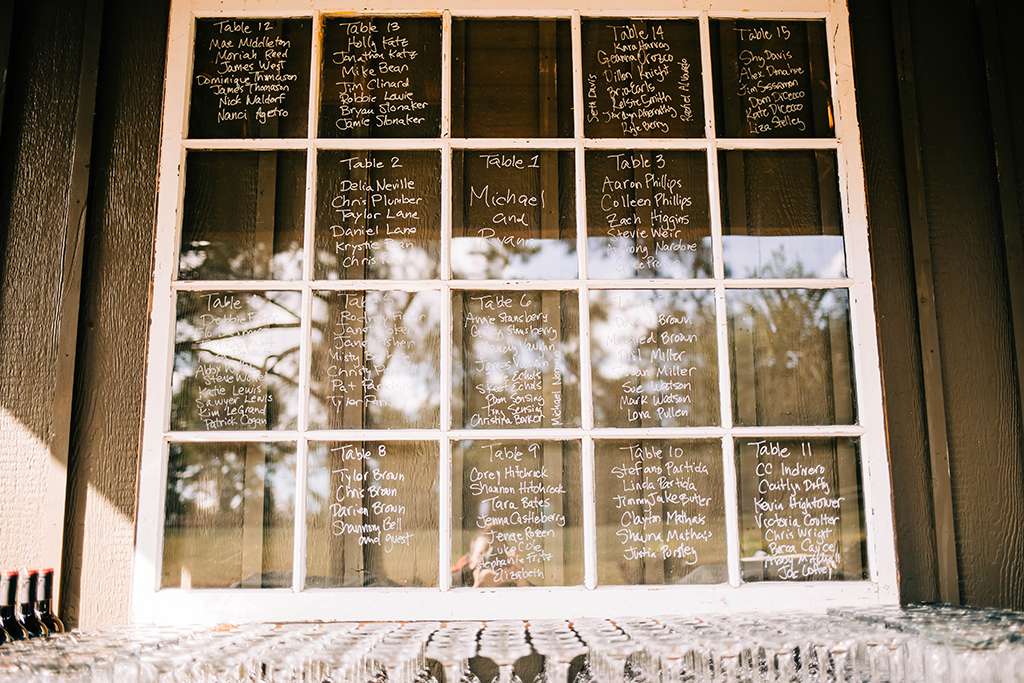 Table 12
Mae Middleton
Moriah Reed
James West
Dominique Thomason
James Thomason
Nick Waldorf
Nanci Agetro
Table 13
Holly Katz
Jonathan Katz
Mike Bean
Jim Clinard
Robbie Lewie
Bryan Slonaker
Jamie Slonaker
Table 14
Kara Harvey
Geanna Orozco
Dillon Knight
Bria Earls
Kelsie Smith
Kate Berry
Seth Davis
Table 15
Shy Davis
Alex Donaire
Jim Sessaman
Dom DiCecco
Kate DiCecco
Liza Stelley
Table 2
Delia Neville
Chris Plumber
Taylor Lane
Daniel Lane
Krystle
Chris
Table 1
Michael
and
Ryan
Table 3
Aaron Phillips
Colleen Phillips
Zach Higgins
Stevie Weir
Nardore
Table
Debbie
Steve
Katie Lewis
Sawyer Lewis
Kim LeGrand
Patrick Cogan
Misty
Pat
Tyler
Table 6
Anne Stansberry
Stansberry
James
Echols
Skeet Echols
Pam Sensing
Tony Sensing
Christina Barker
Michael
Brown
Mildred Brown
Phil Miller
Susan Miller
Sue Watson
Mark Watson
Lona Pullen
Table 8
Tyler Brown
Chris Brown
Darien Brown
Shannon Bell
and guest
Table 9
Corey Hitchcock
Shannon Hitchcock
Tara Bates
Jenna Castleberry
Luke Cole
Stephanie Fritz
Elizabeth
Table 10
Stefano Partida
Linda Partida
Jimmy Jake Butler
Clayton Mathais
Shawna Mathais
Justin Parsley
Table 11
CC Indivero
Caitlin Duffy
Kevin Hightower
Victoria Coulter
Chris Wright
Joe Coffey